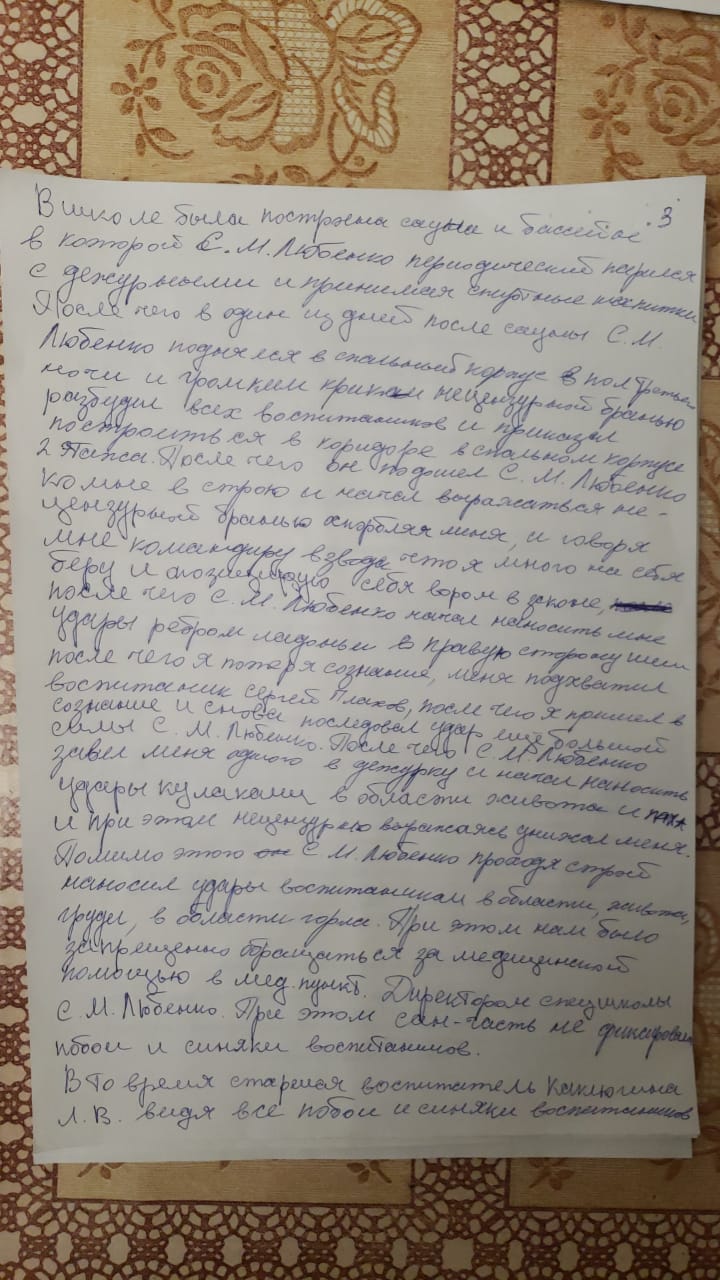 3
В школе была построена сауна и бассейн
в которой С.М. Любенко периодический парился
с дежурными и принимая спиртные напитки
После чего в один из дней после сауны С.М.
Любенко поднялся в спальный корпус в пол третьего
ночи и громким криком нецензурной бранью
разбудил всех воспитаников и приказал
построиться в коридоре в спальном корпусе
2 этажа. После чего он подошел С.М. Любенко
ко мне в строю и начал выражаться не-
цензурной бранью оскорбляя меня, и говоря
мне командиру взвода что я много на себя
беру и себя вором в законе,
после чего С.М. Любенко начал наносить мне
удары ребром ладоньи в правую сторону шеи
после чего я потеря сознание, меня подхватил
воспитаник Сергей Плахов, после чего я пришел в
сознание и снова последовал удар еще большой
силы С.М. Любенко. После чего С.М. Любенко
завел меня одного в дежурку и начал наносить
удары кулаками в области живота и паха
и при этом нецензурно выражаясь унижал меня.
Помимо этого С М. Любенко проходя строй
наносил удары воспитаникам в области, живота,
груди, в области горла. При этом нам было
запрещенно обращаться за медицинской
помощью в мед. пункт. Директором спецшколы
С.М. Любенко. При этом сан-часть не фиксировали
побои и синяки воспитаников.
В то время старшая воспитатель Каклюгина
Л.В. видя все побои и синяки воспитаников